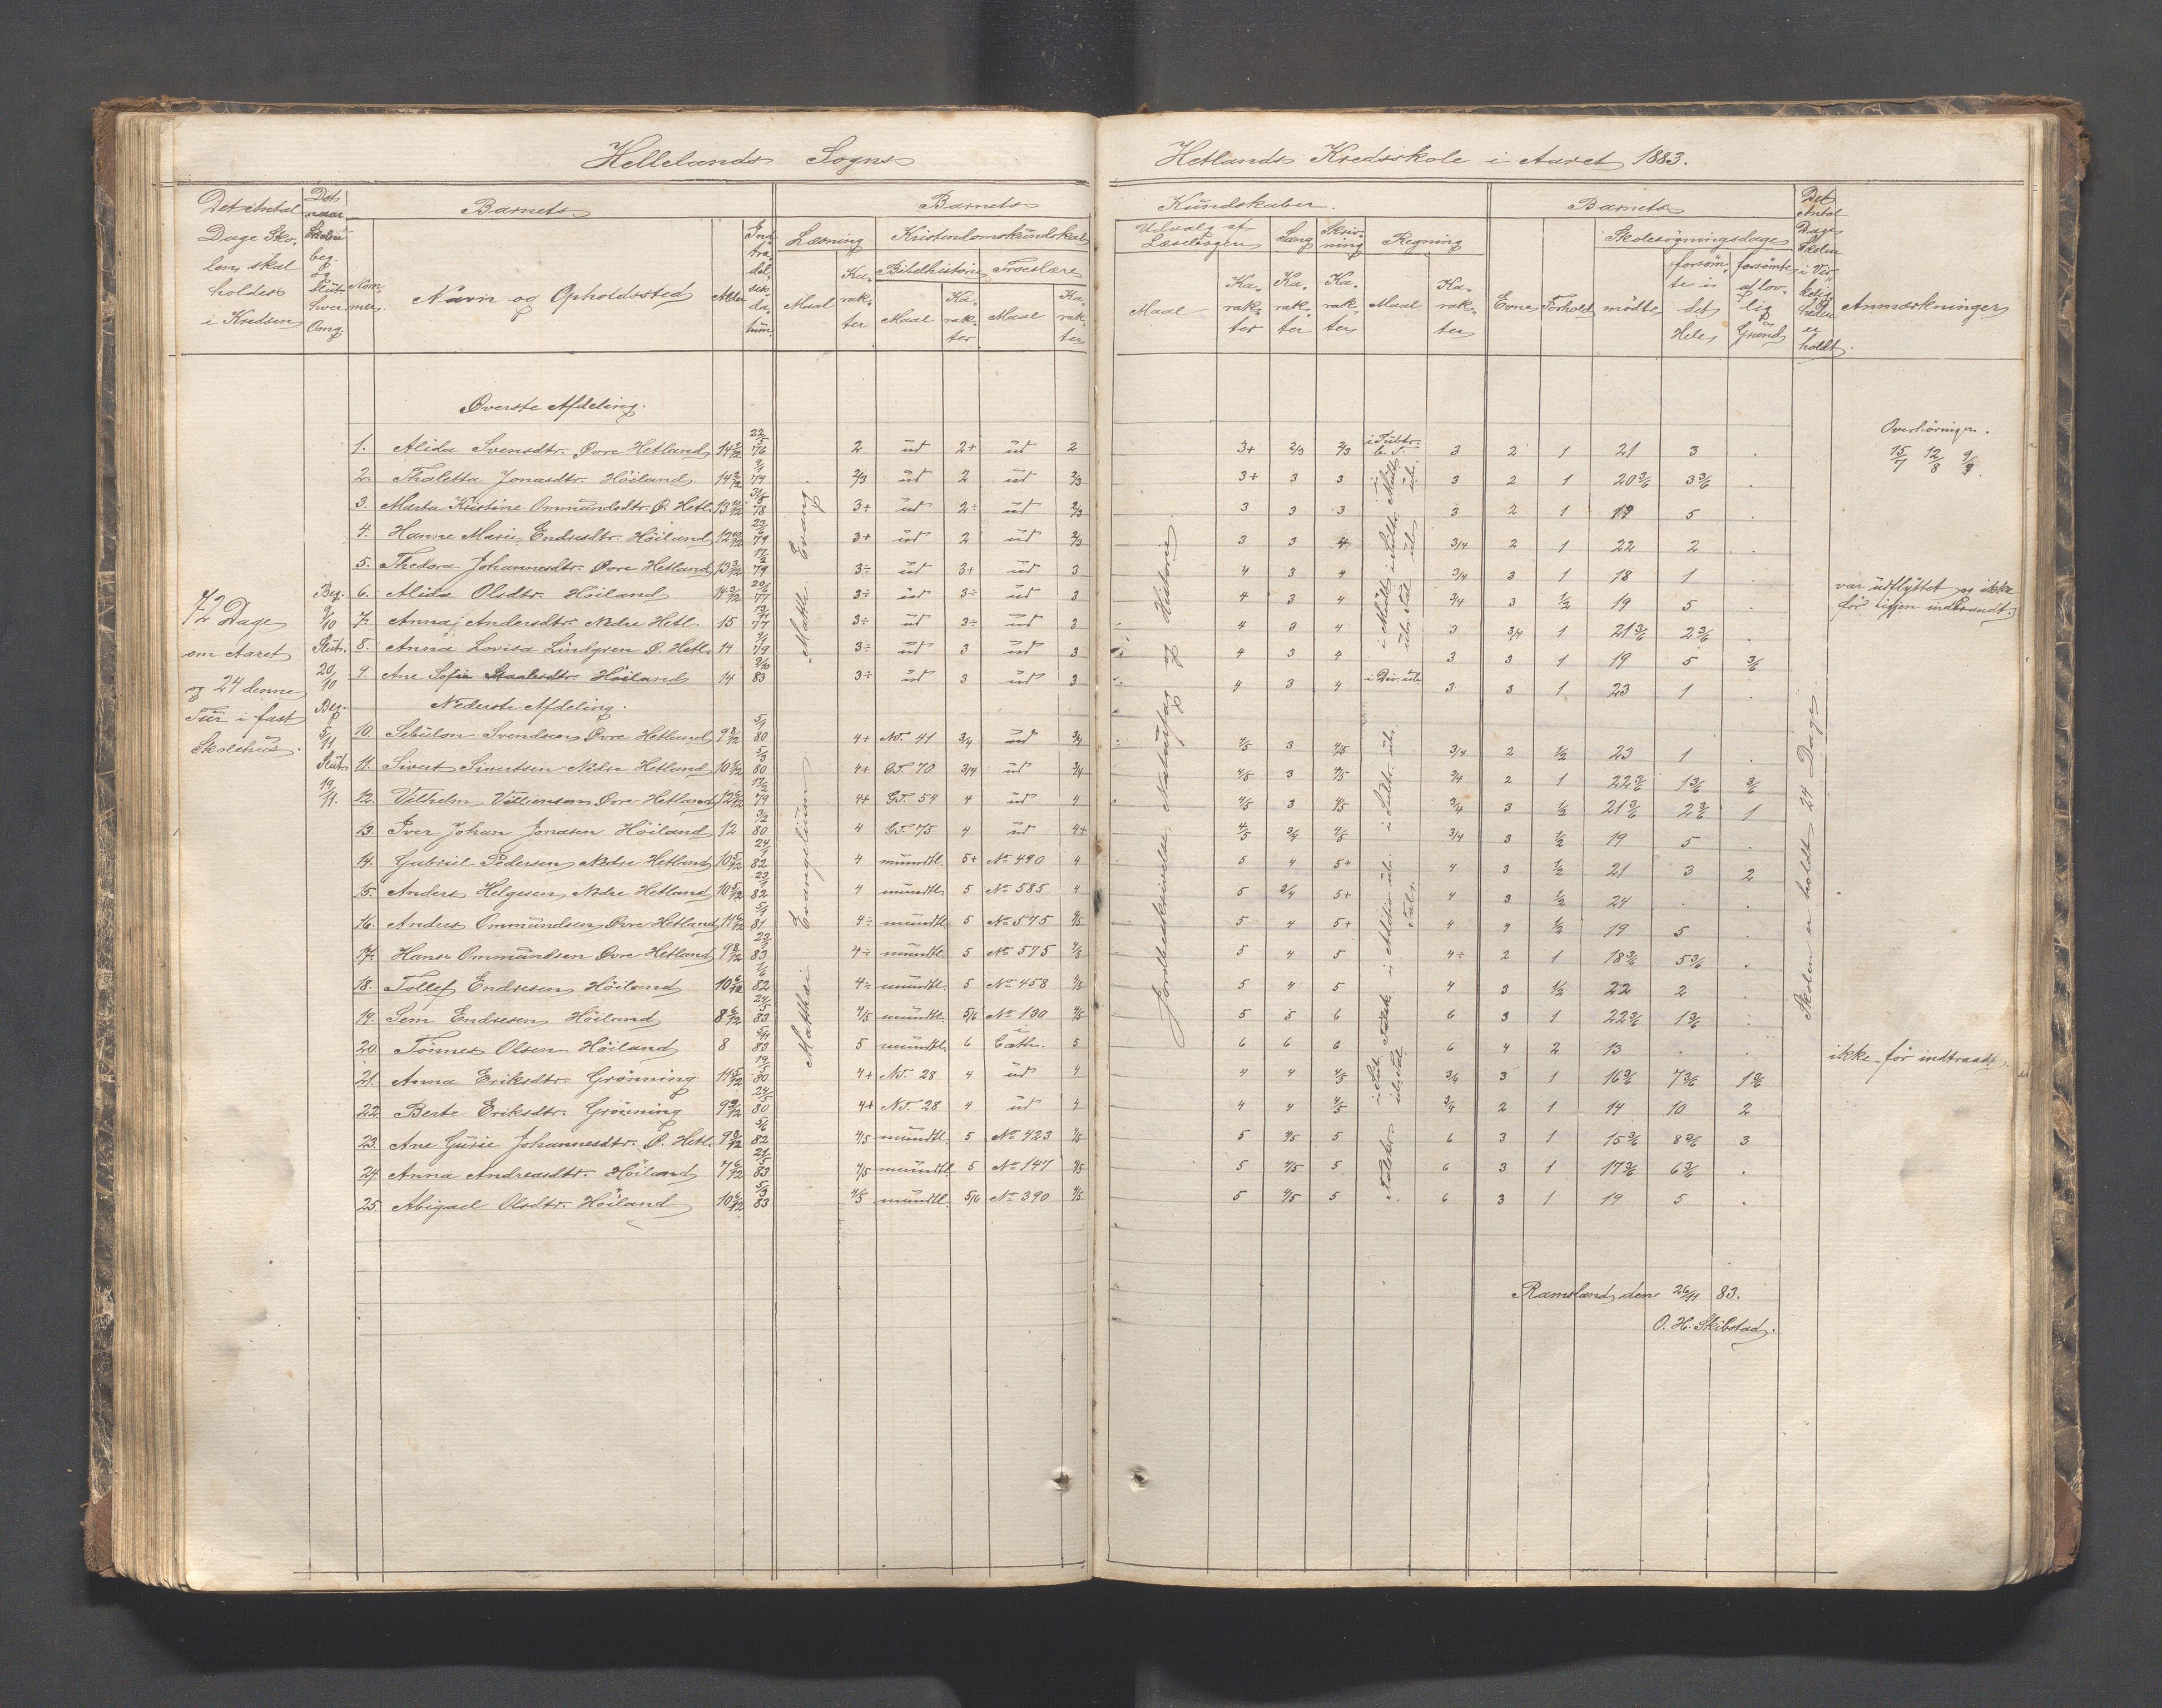 Hellelands Sogns
Hetlands Kredsskole i Aaret 1883.
Det Antal Dage Skolen skal holdes i Kredsen
Det naar Skolen beg. og slut. hver Omg.
Barnets
Nommer
Navn og Opholdssted
Alder
Indtrædelsesdatum
Barnets
Læsning
Maal
Karakter
Kristendomskundskab
Bibelhistorie
Maal
Karakter
Troeslære
Maal
Karakter
Kundskaber.
Udvalg af Læsebogen
Maal
Karakter
Sang
Karakter
Skrivning
Karakter
Regning
Maal
Karakter
Barnets
Evne
Forhold
Skolesøgningsdage
mødte
forsømte i det Hele
forsømte af lovlig Grund
Det Antal Dage Skolen i Virkeligheden er holdt.
Anmærkninger
72 Dage
om Aaret
og 24 denne
Tür i fast
Skolehüs.
Beg. 9/10
Slüt. 20/10
Beg. 5/11
Slüt. 19/11.
Øverste Afdeling.
1. Alida Svensdtr. Øvre Hetland 22/5 76 2 üd 2+ üd 2 3+ 2/3 2/3 3 2 1 21 3 .
2. Thaletta Jonasdtr. Höiland 79 2/3 üd 2 üd 2/3 3+ 3 3 3 2 1 20 3/6 3 3/6 .
3. Marta Kristine Ommündsdtr. Ø. Hetl. 78 3+ üd 2÷ üd 2/3 3 3 3 3 2 1 19 5 .
4. Hanne Marie Endresdtr. Höiland 79 3+ üd 2 üd 2/3 3 3 4 3/4 2 1 22 2 .
5. Thedora Johannesdtr. Øvre Hetland 79 3÷ üd 3+ üd 3 4 3 4 3/4 3 1 18 1 .
6. Alida Olsdtr. Höiland 77 3÷ üd 3÷ üd 3 4 3 4 3/4 3 1/2 19 5 .
7. Anna Andersdtr. Nedre Hetl. 15 77 3÷ üd 3÷ üd 3 4 3 4 3 3/4 1 21 3/6 2 3/6 .
8. Anna Lovisa Lindgren Ø. Hetl. 14 79 3÷ üd 3 üd 3 4 3 4 3 3 1 19 5 3/6
9. Ane Sofie Staalesdtr. Höiland 14 83 3÷ üd 3 üd 3 4 3 4 3 3 1 23 1 .
Nederste Afdeling.
10. Sebülon Svendsen Øvre Hetland 9 8/12 80 4+ N.T. 41 3/4 üd 3/4 4/5 3 4/5 3/4 2 1/2 23 1 .
11. Sivert Sivertsen Nedre Hetland 80 4+ G.T. 70 3/4 üd 3/4 4/5 3 4/5 3/4 2 1 22 3/6 1 3/6 3/6
12. Vilhelm Villiamsen Øvre Hetland 79 4+ G.T. 54 4 üd 4 4/5 3 4/5 3/4 3 1/2 21 3/6 2 3/6 1
13. Iver Johan Jonasen Höiland 12 80 4 G.T. 75 4 üd 4+ 4/5 3/4 4/5 3/4 3 1/2 19 5 .
14. Gabriel Pedersen Nedre Hetland 10 5/12 82 4 mündtl. 5+ No 490 4 5 4 5+ 4 3 1/2 21 3 2
15. Anders Helgesen Nedre Hetland 10 5/12 82 4 mündtl. 5 No 585 4 5 3/4 5+ 4 3 1/2 24 . .
16. Anders Ommündsen Øvre Hetland 11 6/12 81 4÷ mündtl. 5 No 575 4/5 5 4 5+ 4 4 1/2 19 5 .
17. Hans Ommündsen Øvre Hetland 9 8/12 83 4÷ mündtl. 5 No 575 4/5 5 4 5 4÷ 2 1 18 3/6 5 3/6 .
18. Tollef Endresen Höiland 10 6/12 82 4÷ mündtl. 5 No 458 4/5 5 4 5 4 3 1/2 22 2 .
19. Sem Endresen Höiland 8 6/12 83 4/5 mündtl. 5/6 No 130 4/5 5 5 6 6 3 1 22 3/6 1 3/6 .
20. Tönnes Olsen Höiland 8 5/11 83 5 mündtl. 6 i Cath. 5 6 6 6 6 4 2 13 . .
21. Anna Eriksdtr. Grönning 11 5/12 80 4+ N.T. 28 4 üd 4 4 4 4/5 3/4 3 1 16 3/6 7 3/6 1 3/6
22. Berte Eriksdtr. Grönning 80 4+ N.T. 28 4 üd 4 4 4 4/5 3/4 2 1 14 10 2
23. Ane Gürie Johannesdtr. Ø. Hetl. 9 8/12 82 4/5 mündtl. 5 No 423 4/5 5 4/5 5 6 3 1 15 3/6 8 3/6 3
24. Anna Andreasdtr. Höiland 7 6/12 83 4/5 mündtl. 5 No 147 4/5 5 4/5 5 6 3 1 17 3/6 6 3/6 .
25. Abigael Olsdtr. Höiland 10 6/12 83 4/5 mündtl. 5/6 No 390 4/5 5 4/5 5 6 3 1 19 5 .
Matth. Evang.
Matthæi Evangelium
Jordbeskrivelse, Natürfag og Historie
Skolen er holdt 24 Dage
Overhöringer.
15/7 12/8 9/9
var üdflyttet og ikke
för igjen indtraadt.
ikke för indtraadt.
Ramsland den 26/11 83.
O. H. Skibstad.